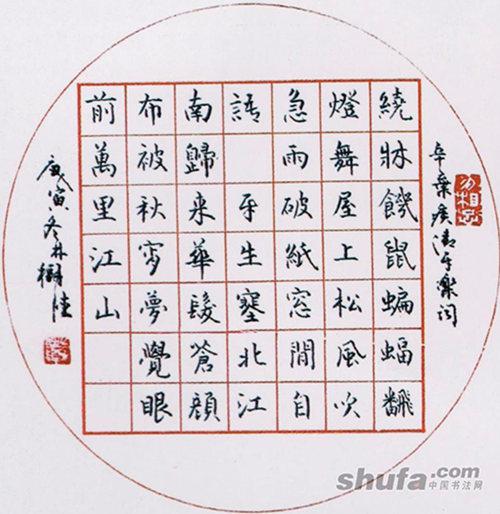 辛棄疾清平樂詞
繞牀饑鼠蝙蝠飜
燈舞屋上松風吹
急雨破紙窗間自
語 平生塞北江
南歸来華髮蒼顔
布被秋宵夢覺眼
前萬里江山
戊寅冬林樹
勿相忘
shufa.com
中国书法网